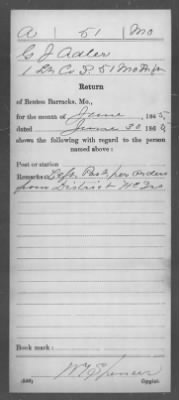 A | 51 | Mo
G J Adler
1 Lt Co I. 51 Mo Inf
Return
of Benton Barracks, Mo.,
for the month of June, 1865.
dated June 30 186
shows the following with regard to the person
named above:
Post or station
Remarks: Left Post per orders
from District
Book mark:
W H Spencer
Copyist.